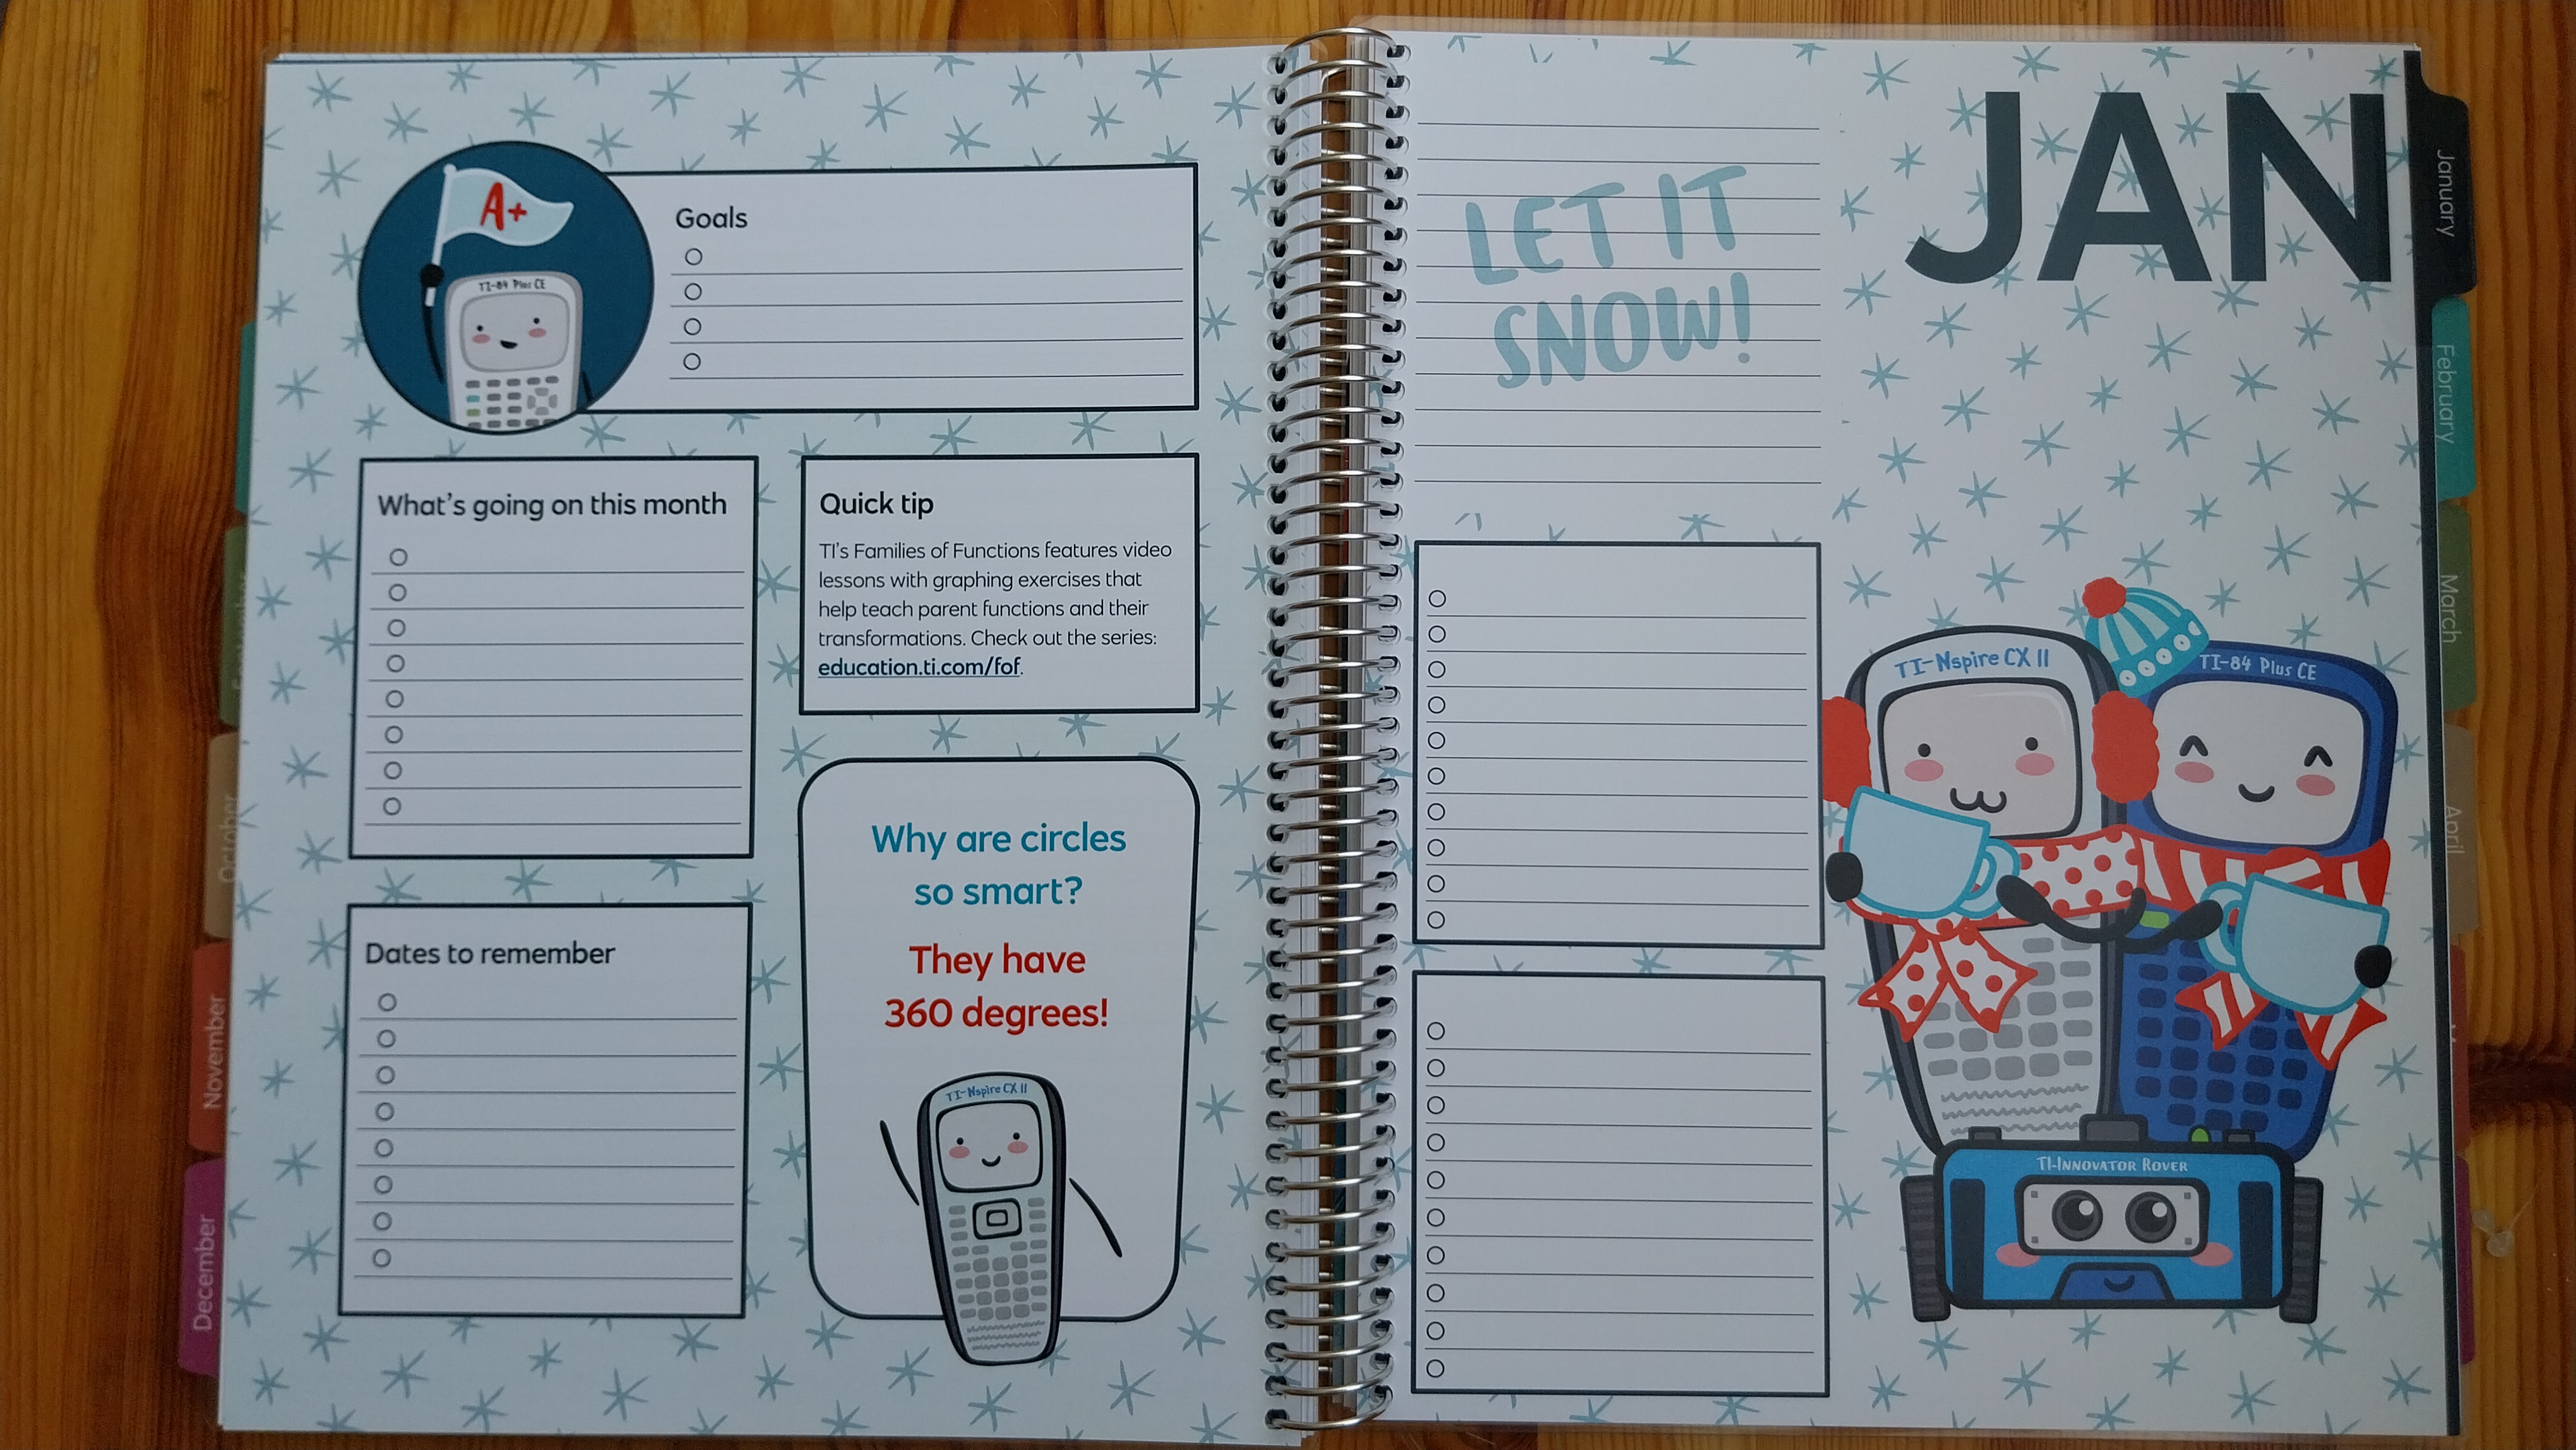 A+
TI-84 Plus CE
Goals
What's going on this month
Quick tip
TI's Families of Functions features video
lessons with graphing exercises that
help teach parent functions and their
transformations. Check out the series:
education.ti.com/fof.
Dates to remember
Why are circles
so smart?
They have
360 degrees!
TI-Nspire CX II
October
November
December
LET IT
SNOW!
JAN
TI-Nspire CX II
TI-84 Plus CE
TI-INNOVATOR ROVER
January
February
March
April